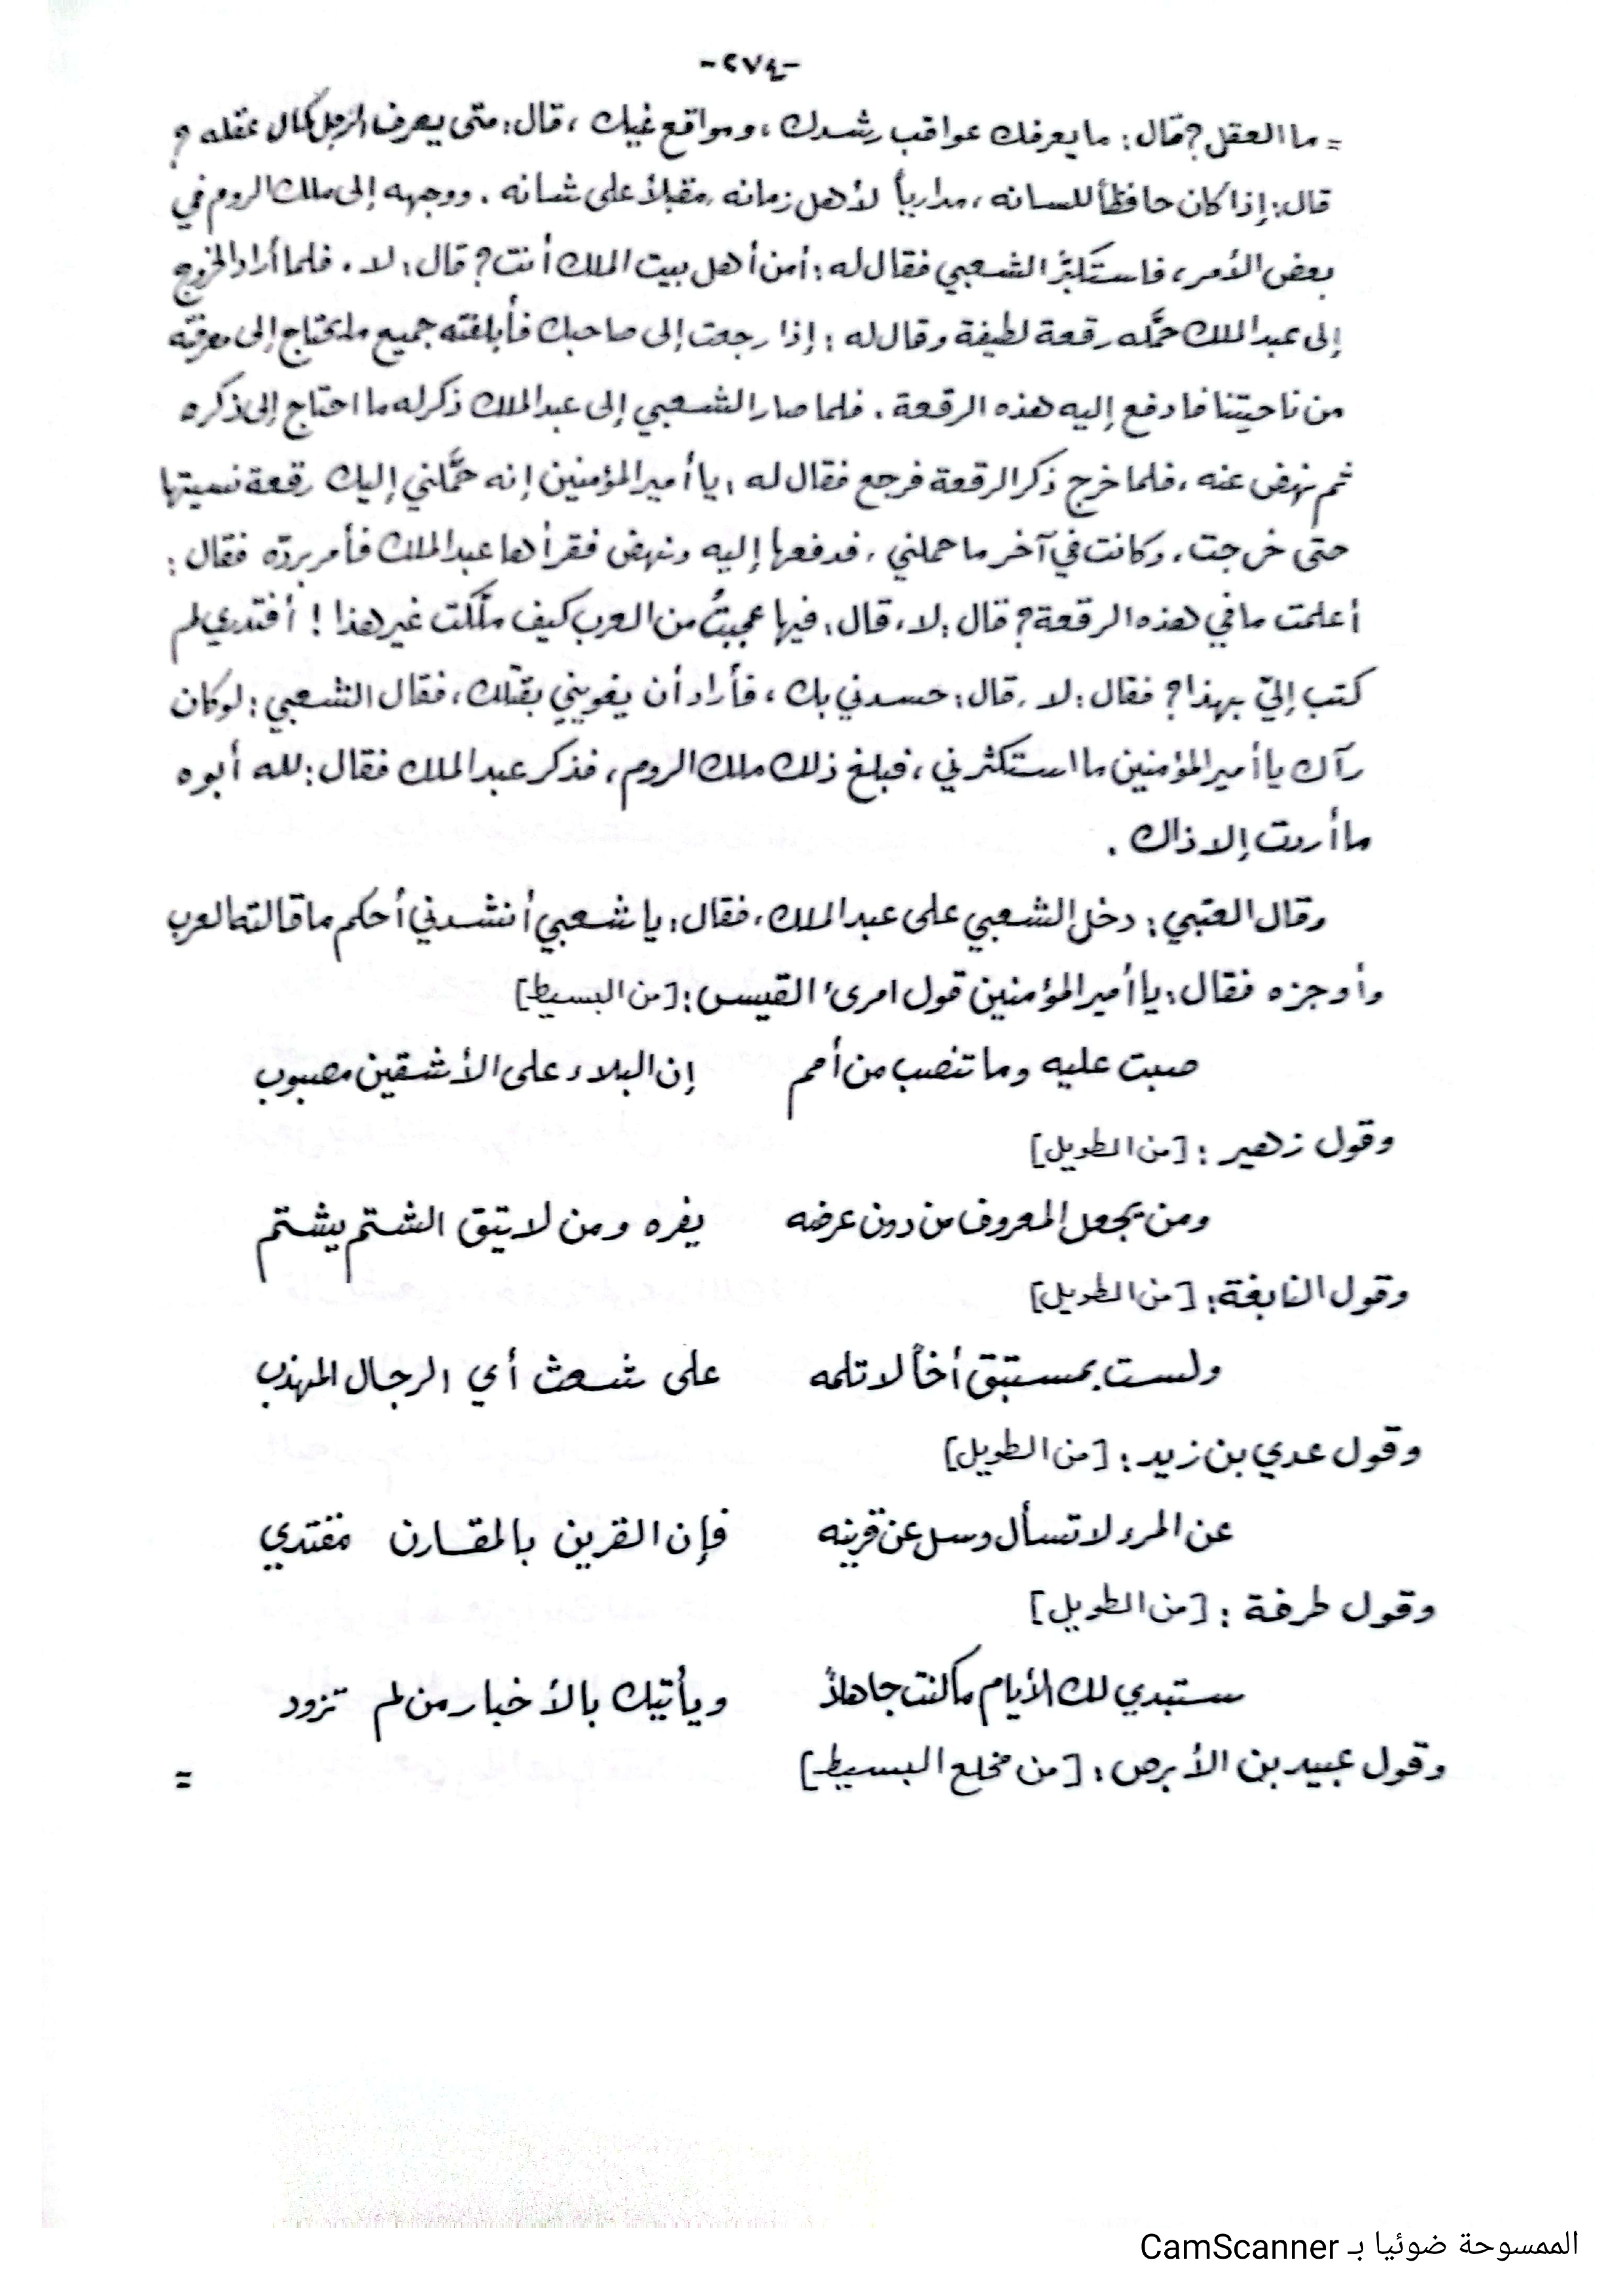 -٢٧٤-
= ما العقل؟ قال: ما يعرفك عواقب رشدك، ومواقع غيك، قال: متى يعرف الرجل كمال عقله؟
قال: إذا كان حافظاً للسانه، مدارياً لأهل زمانه، مقبلاً على شانه. ووجهه إلى ملك الروم في
بعض الأمر، فاستكبرَ الشعبي فقال له: أمن أهل بيت الملك أنت؟ قال: لا. فلما أراد الخروج
إلى عبد الملك حمَّله رقعة لطيفة وقال له: إذا رجعت إلى صاحبك فأبلغته جميع ما يحتاج إلى معرفته
من ناحيتنا فادفع إليه هذه الرقعة. فلما صار الشعبي إلى عبد الملك ذكر له ما احتاج إلى ذكره
ثم نهض عنه، فلما خرج ذكر الرقعة فرجع فقال له: يا أمير المؤمنين إنه حمَّلني إليك رقعة نسيتها
حتى خرجت، وكانت في آخر ما حملني، فدفعها إليه ونهض فقرأها عبد الملك فأمر بردّه فقال:
أعلمت ما في هذه الرقعة؟ قال: لا، قال: فيها عجبتُ من العرب كيف ملَّكت غير هذا! أفتدري لم
كتب إليّ بهذا؟ فقال: لا، قال: حسدني بك، فأراد أن يغويني بقتلك، فقال الشعبي: لو كان
رآك يا أمير المؤمنين ما استكثرني، فبلغ ذلك ملك الروم، فذكر عبد الملك فقال: لله أبوه
ما أردت إلا ذاك.
وقال العتبي: دخل الشعبي على عبد الملك، فقال: يا شعبي أنشدني أحكم ما قالته العرب
وأوجزه فقال: يا أمير المؤمنين قول امرئ القيس: [من البسيط]
صبت عليه وما تنصب من أمم إن البلاء على الأشقين مصبوب
وقول زهير: [من الطويل]
ومن يجعل المعروف من دون عرضه يفره ومن لا يتق الشتم يشتم
وقول النابغة: [من الطويل]
ولست بمستبق أخاً لا تلمه على شعث أي الرجال المهذب
وقول عدي بن زيد: [من الطويل]
عن المرء لا تسأل وسل عن قرينه فإن القرين بالمقارن مقتدي
وقول طرفة: [من الطويل]
ستبدي لك الأيام ما كنت جاهلاً ويأتيك بالأخبار من لم تزود
وقول عبيد بن الأبرص: [من مخلع البسيط] =
الممسوحة ضوئيا بـ CamScanner